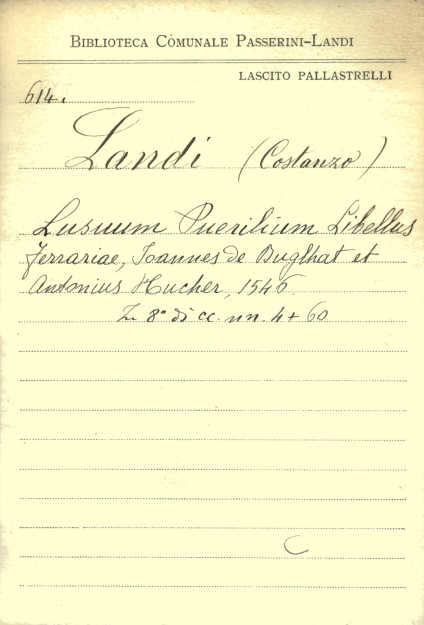 BIBLIOTECA COMUNALE PASSERINI-LANDI
LASCITO PALLASTRELLI
614.
Landi (Costanzo)
Lusuum Puerilium Libellus
Ferrariae, Joannes de Buglhat et
Antonius Hucher, 1546
In 8° di cc. nn. 4+60
C